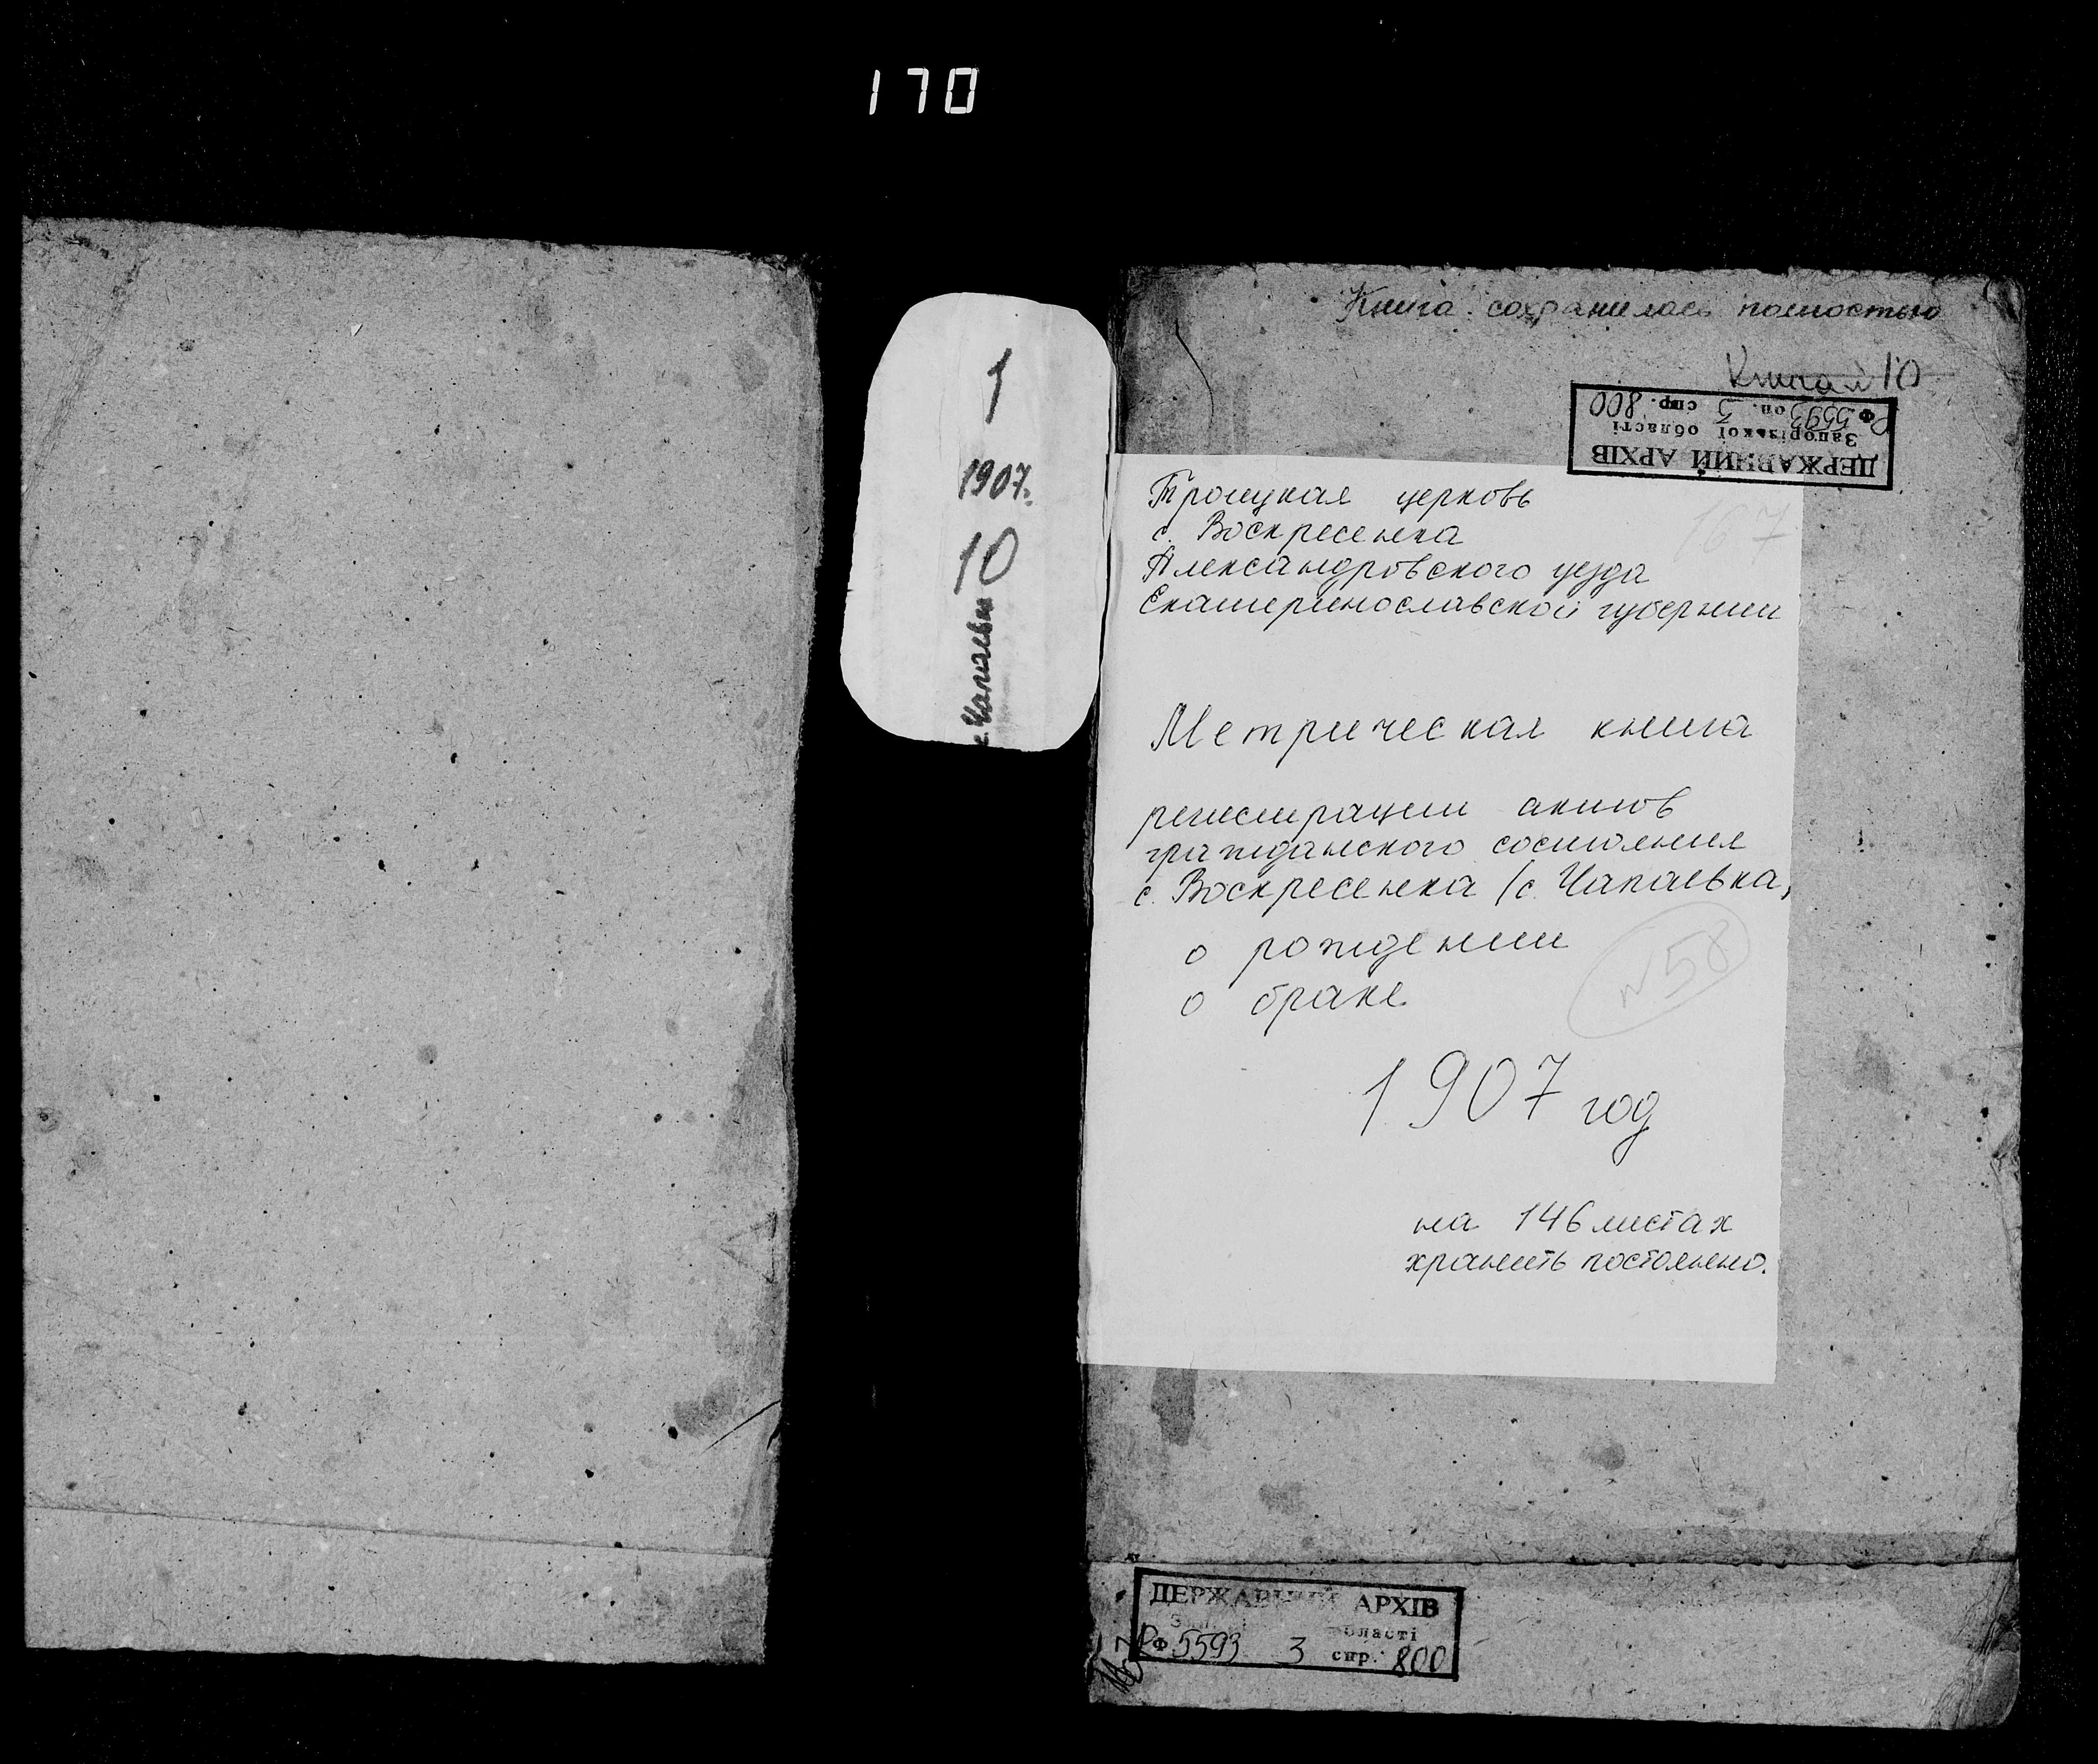 170
1
1907.
10
с. Чапаевки
Книга сохранилась полностью
Книга № 10
ДЕРЖАВНИЙ АРХІВ
Запорізької області
Р Ф. 5593 оп. 3 спр. 800
167
Троицкая церковь
с. Воскресенка
Александровского уезда
Екатеринославской губернии
Метрическая книга
регистрации актов
гражданского состояния
с. Воскресенка (с. Чапаевка,
о рождении
о браке
№58
1907 год
на 146 листах
хранить постоянно.
ДЕРЖАВНИЙ АРХІВ
області
Р Ф. 5593 3 спр. 800